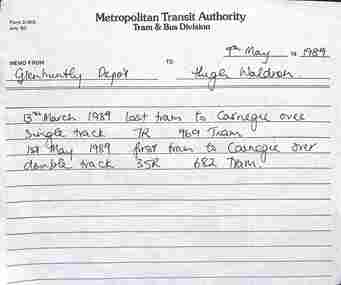 Metropolitan Transit Authority
Tram & Bus Division
9th May 19 1989
MEMO FROM TO
Glenhuntly Depot Hugh Waldron
13th March 1989 last tram to Carnegie over
Single track 7R 969 Tram
1st May 1989 first tram to Carnegie over
double track 35R 682 Tram.